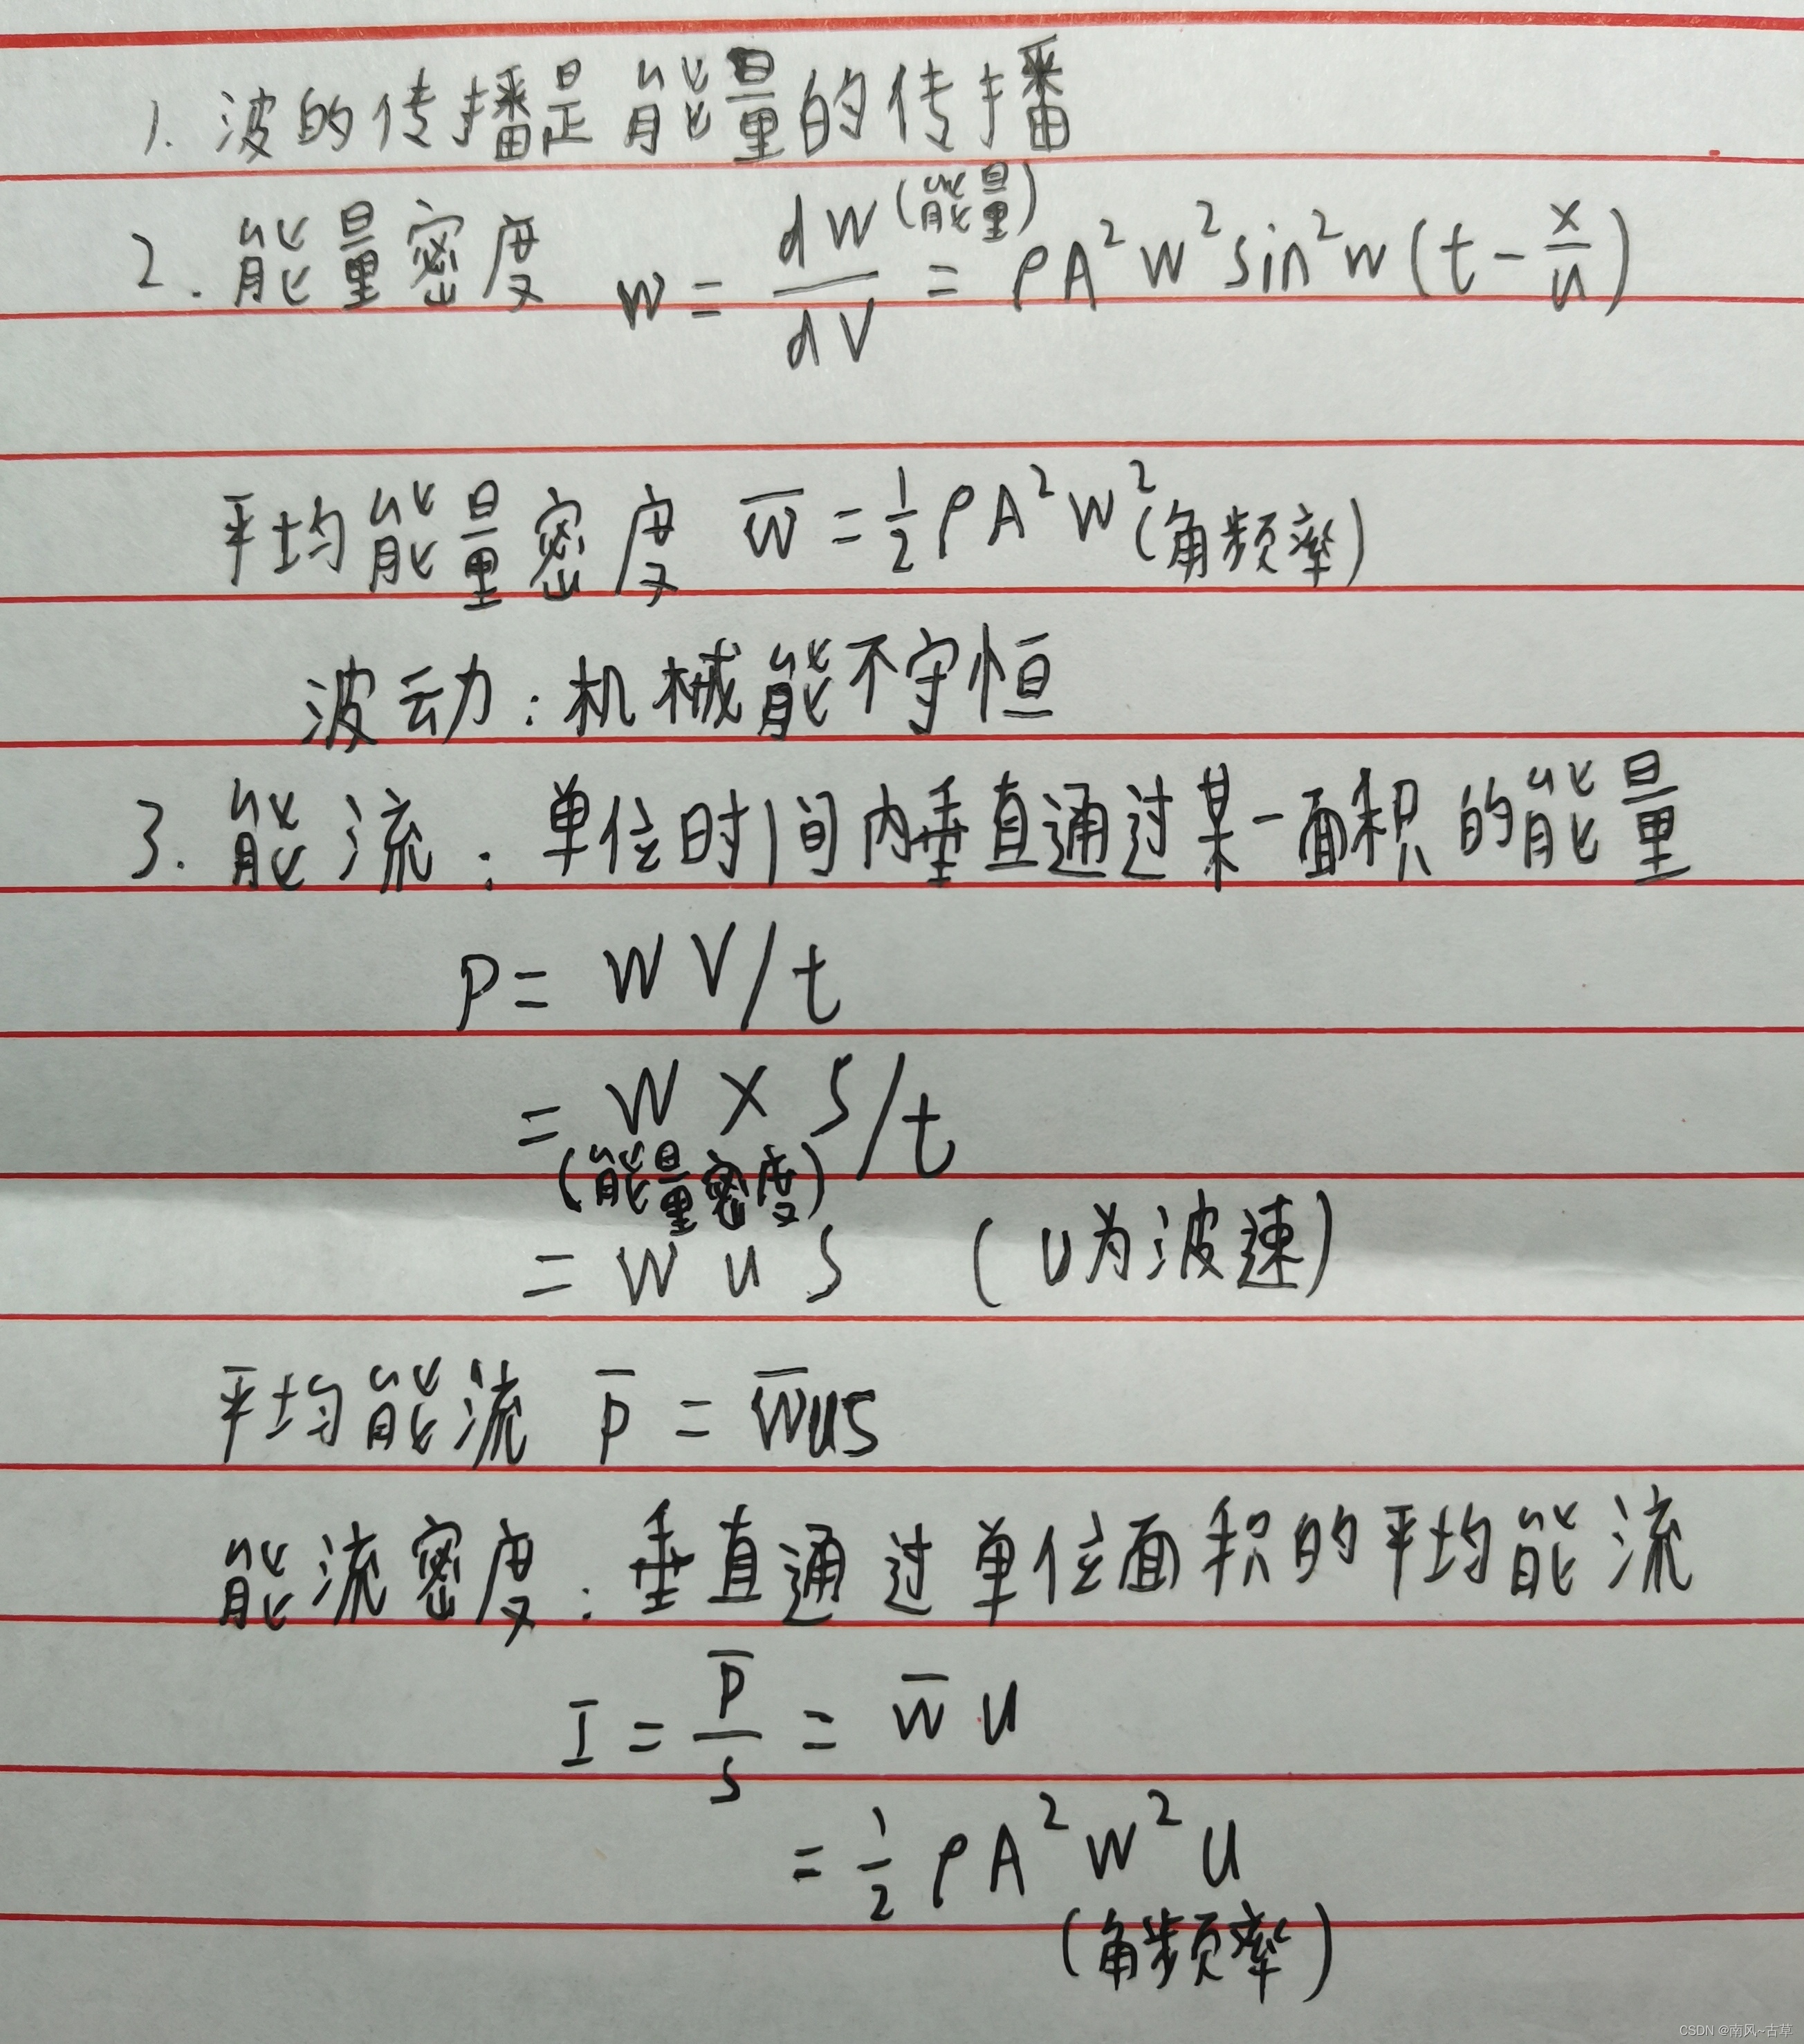 1. 波的传播是能量的传播
2. 能量密度 w = dW(能量)/dV = ρA²w²sin²w(t-x/u)
平均能量密度 w̅ = 1/2 ρA²w²(角频率)
波动:机械能不守恒
3. 能流:单位时间内垂直通过某一面积的能量
P= wV/t
= w x S/t
(能量密度)
= w u S (u为波速)
平均能流 p̅ = w̅us
能流密度:垂直通过单位面积的平均能流
I = p̅/s = w̅ u
= 1/2 ρA²w²u
(角频率)
CSDN @南风~古草